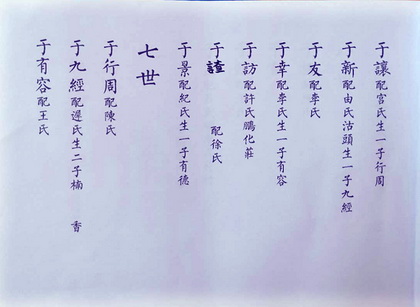 于讓配宮氏生一子行周
于新配由氏沽頭生一子九經
于友配李氏
于幸配李氏生一子有容
于訪配許氏鵬化莊
于譇 配徐氏
于景配紀氏生一子有德
七世
于行周配陳氏
于九經配遲氏生二子楠 香
于有容配王氏